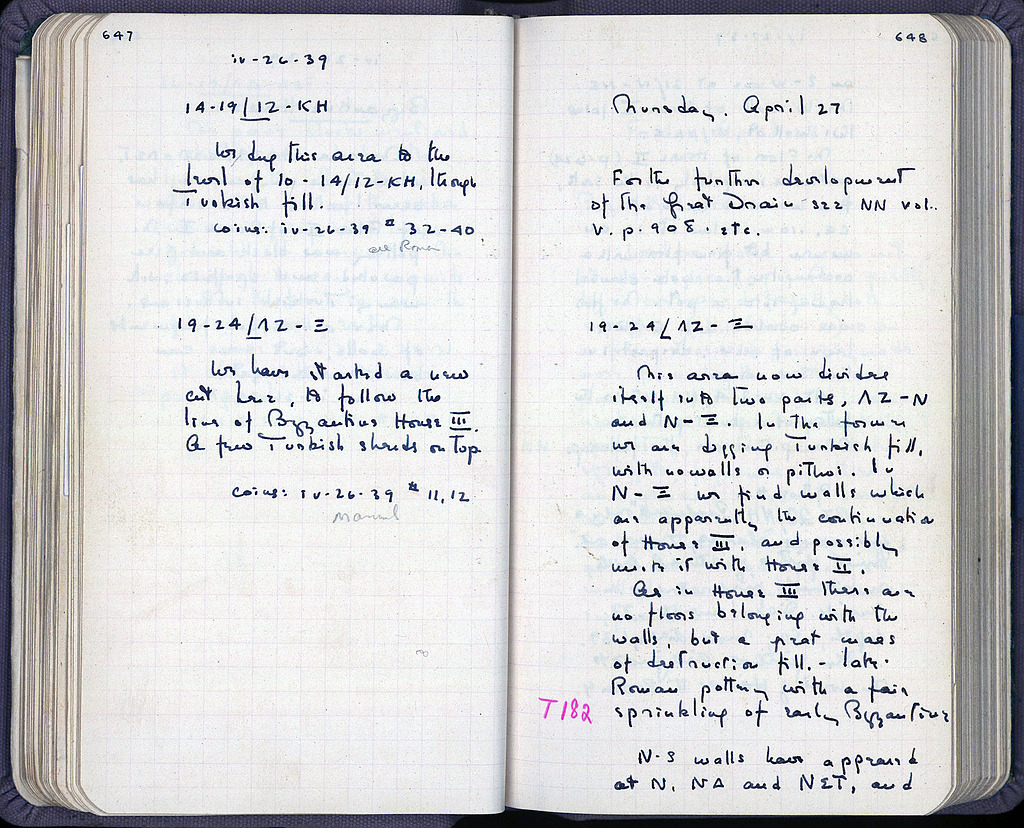 647
iv-26-39
14-19/12-KH
We dug this area to the
level of 10-14/12-KH, through
Turkish fill.
coins: iv-26-39 # 32-40
all Roman
19-24/ΛZ-Ξ
We have started a new
cut here, to follow the
line of Byzantine House III.
A few Turkish sherds on top
coins: iv-26-39 # 11, 12
Manuel
648
Thursday. April 27
For the further development
of the Great Drain see NN vol.
V. p. 908. etc.
19-24/ΛZ-Ξ
This area now divides
itself into two parts, ΛZ-N
and N-Ξ. In the former
we are digging Turkish fill,
with no walls or pithoi. In
N-Ξ we find walls which
are apparently the continuation
of House III, and possibly
unite it with House II.
As in House III there are
no floors belonging with the
walls, but a great mass
of destruction fill. - late
Roman pottery with a fair
T182
sprinkling of early Byzantine
N-S walls have appeared
at N, NΔ and NΣT, and